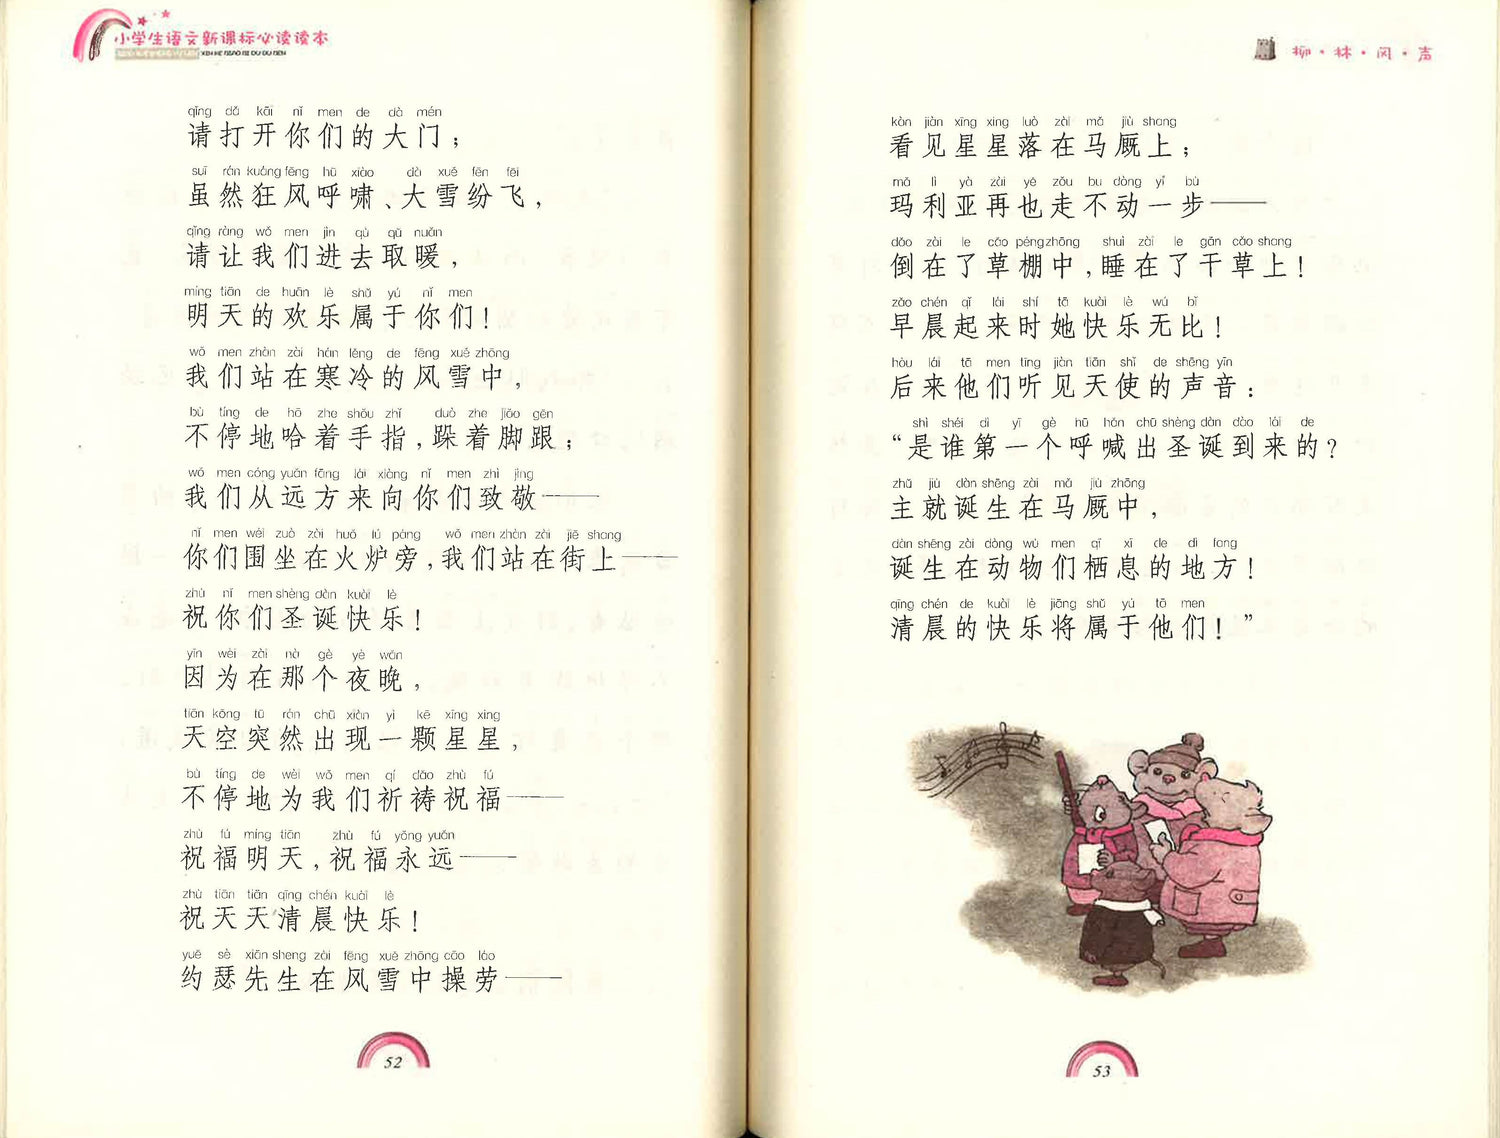 小学生语文新课标必读读本
XIN KE BIAO BI DU DU BEN
qǐng dǎ kāi nǐ men de dà mén
请打开你们的大门；
suī rán kuáng fēng hū xiào dà xuě fēn fēi
虽然狂风呼啸、大雪纷飞，
qǐng ràng wǒ men jìn qù qǔ nuǎn
请让我们进去取暖，
míng tiān de huān lè shǔ yú nǐ men
明天的欢乐属于你们！
wǒ men zhàn zài hán lěng de fēng xuě zhōng
我们站在寒冷的风雪中，
bù tíng de hā zhe shǒu zhǐ duò zhe jiǎo gēn
不停地哈着手指，跺着脚跟；
wǒ men cóng yuǎn fāng lái xiàng nǐ men zhì jìng
我们从远方来向你们致敬——
nǐ men wéi zuò zài huǒ lú páng wǒ men zhàn zài jiē shang
你们围坐在火炉旁，我们站在街上——
zhù nǐ men shèng dàn kuài lè
祝你们圣诞快乐！
yīn wèi zài nà gè yè wǎn
因为在那个夜晚，
tiān kōng tū rán chū xiàn yì kē xīng xing
天空突然出现一颗星星，
bù tíng de wèi wǒ men qí dǎo zhù fú
不停地为我们祈祷祝福——
zhù fú míng tiān zhù fú yǒng yuǎn
祝福明天，祝福永远——
zhù tiān tiān qīng chén kuài lè
祝天天清晨快乐！
yuē sè xiān sheng zài fēng xuě zhōng cāo láo
约瑟先生在风雪中操劳——
52
柳·林·风·声
kàn jiàn xīng xing luò zài mǎ jiù shang
看见星星落在马厩上；
mǎ lì yà zài yě zǒu bu dòng yí bù
玛利亚再也走不动一步——
dǎo zài le cǎo péng zhōng shuì zài le gān cǎo shang
倒在了草棚中，睡在了干草上！
zǎo chén qǐ lái shí tā kuài lè wú bǐ
早晨起来时她快乐无比！
hòu lái tā men tīng jiàn tiān shǐ de shēng yīn
后来他们听见天使的声音：
shì shéi dì yī gè hū hǎn chū shèng dàn dào lái de
“是谁第一个呼喊出圣诞到来的？
zhǔ jiù dàn shēng zài mǎ jiù zhōng
主就诞生在马厩中，
dàn shēng zài dòng wù men qī xī de dì fang
诞生在动物们栖息的地方！
qīng chén de kuài lè jiāng shǔ yú tā men
清晨的快乐将属于他们！”
53